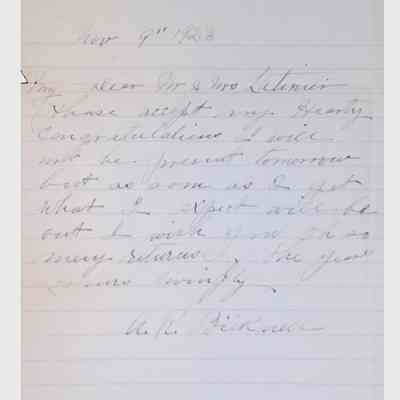 Nov 9th 1923
My Dear Mr & Mrs Latimer
Please accept my Hearty
Congratulations I will
not be present tomorrow
but as soon as I get
what I expect will be
out I wish you
many returns
yours
A. R. Bicknell